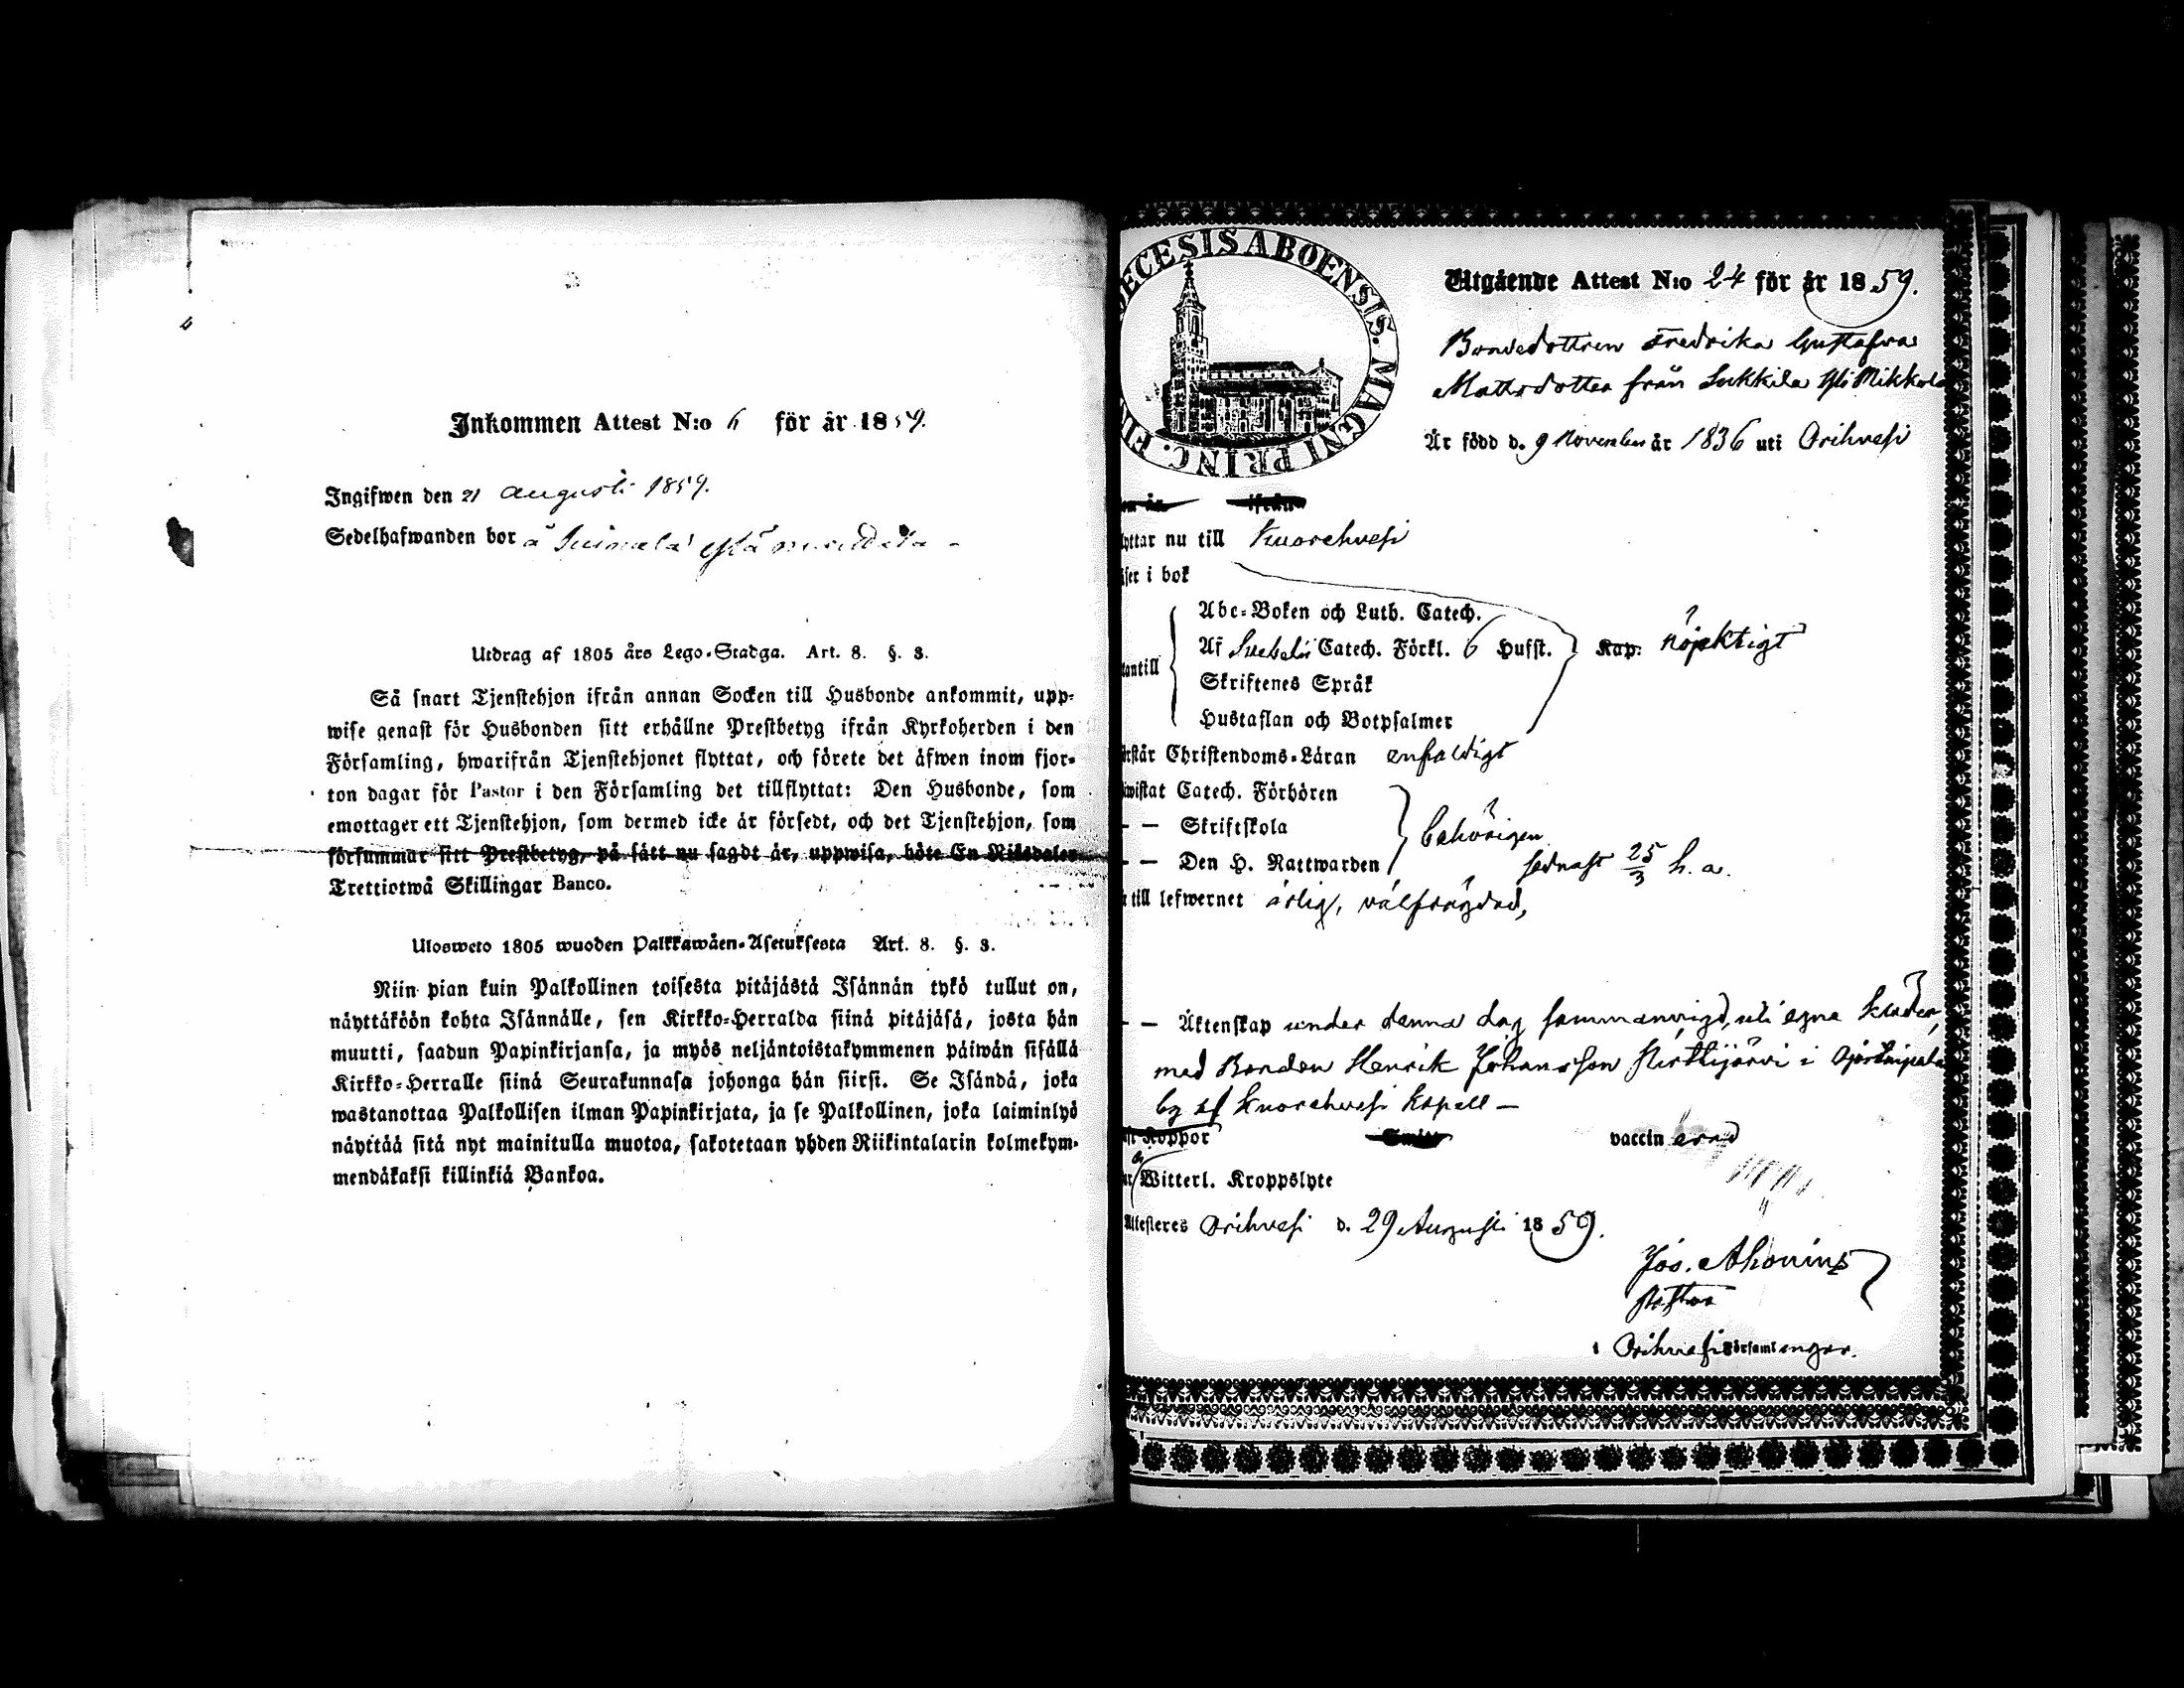 Inkommen Attest N:o 6 för år 1859.
Ingifwen den 21 Augusti 1859.
Sedelhafwanden bor å
Utdrag af 1805 års Lego-Stadga. Art. 8. §. 3.
Så snart Tjenstehjon ifrån annan Socken till Husbonde ankommit, upp-
wise genast för Husbonden sitt erhållne Prestbetyg ifrån Kyrkoherden i den
Församling, hwarifrån Tjenstehjonet flyttat, och förete det äfwen inom fjor-
ton dagar för Pastor i den Församling det tillflyttat: Den Husbonde, som
emottager ett Tjenstehjon, som dermed icke är försedt, och det Tjenstehjon, som
försummar sitt Prestbetyg, på sätt nu sagdt är, uppwisa, böte En Riksdaler
Trettiotwå Skillingar Banco.
Ulosweto 1805 wuoden Palkkawäen-Asetuksesta Art. 8. §. 3.
Niin pian kuin Palkollinen toisesta pitäjästä Isännän tykö tullut on,
näyttäköön kohta Isännälle, sen Kirkko-Herralda siinä pitäjäsä, josta hän
muutti, saadun Papinkirjansa, ja myös neljäntoistakymmenen päiwän sisällä
Kirkko-Herralle siinä Seurakunnasa johonga hän siirsi. Se Isändä, joka
wastanottaa Palkollisen ilman Papinkirjata, ja se Palkollinen, joka laiminlyö
näyttää sitä nyt mainitulla muotoa, sakotetaan yhden Riikintalarin kolmekym-
mendäkaksi killinkiä Bankoa.
ECESIS ABOENSIS. MAGNI PRINC. FIN
Utgående Attest N:o 24 för år 1859.
Bondedottren Fredrika Gustafva
Mattsdotter från Sukkila Yli Mikkola
Är född d. 9 November år 1836 uti Orihvesi
om år ifrån
lyttar nu till Kuorehvesi
äser i bok
Abc-Boken och Luth. Catech.
Af Svebelii Catech. Förkl. 6 Hufst. Kap. nöjaktigt
tantill
Skriftenes Språk
Hustaflan och Botpsalmer
örstår Christendoms-Läran enfaldigt
iwistat Catech. Förhören
— — Skriftskola behörigen
— — Den H. Nattwarden sednast 25/3 h. a.
till lefwernet ärlig, välfrägdad,
— — Äktenskap under denna dag sammanvigd, uti egna kläder,
med Bonden Henrik Johansson Perttijärvi i
by af Kuorehvesi Kapell —
Koppor Smitt vaccinerad
Witterl. Kroppslyte
Attesteres Orihvesi d. 29 Augusti 1859.
Jos. Ahonius
Pastor
i Orihvesi Församlingar.